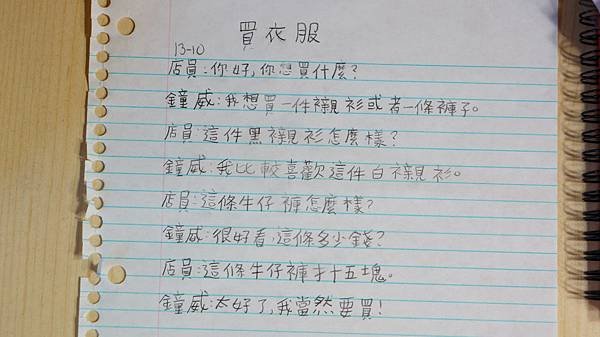 買衣服
13-10
店員:你好,你想買什麼?
鐘威:我想買一件襯衫或者一條褲子。
店員:這件黑襯衫怎麼樣?
鐘威:我比較喜歡這件白襯衫。
店員:這條牛仔褲怎麼樣?
鐘威:很好看,這條多少錢?
店員:這條牛仔褲才十五塊。
鐘威:太好了,我當然要買!